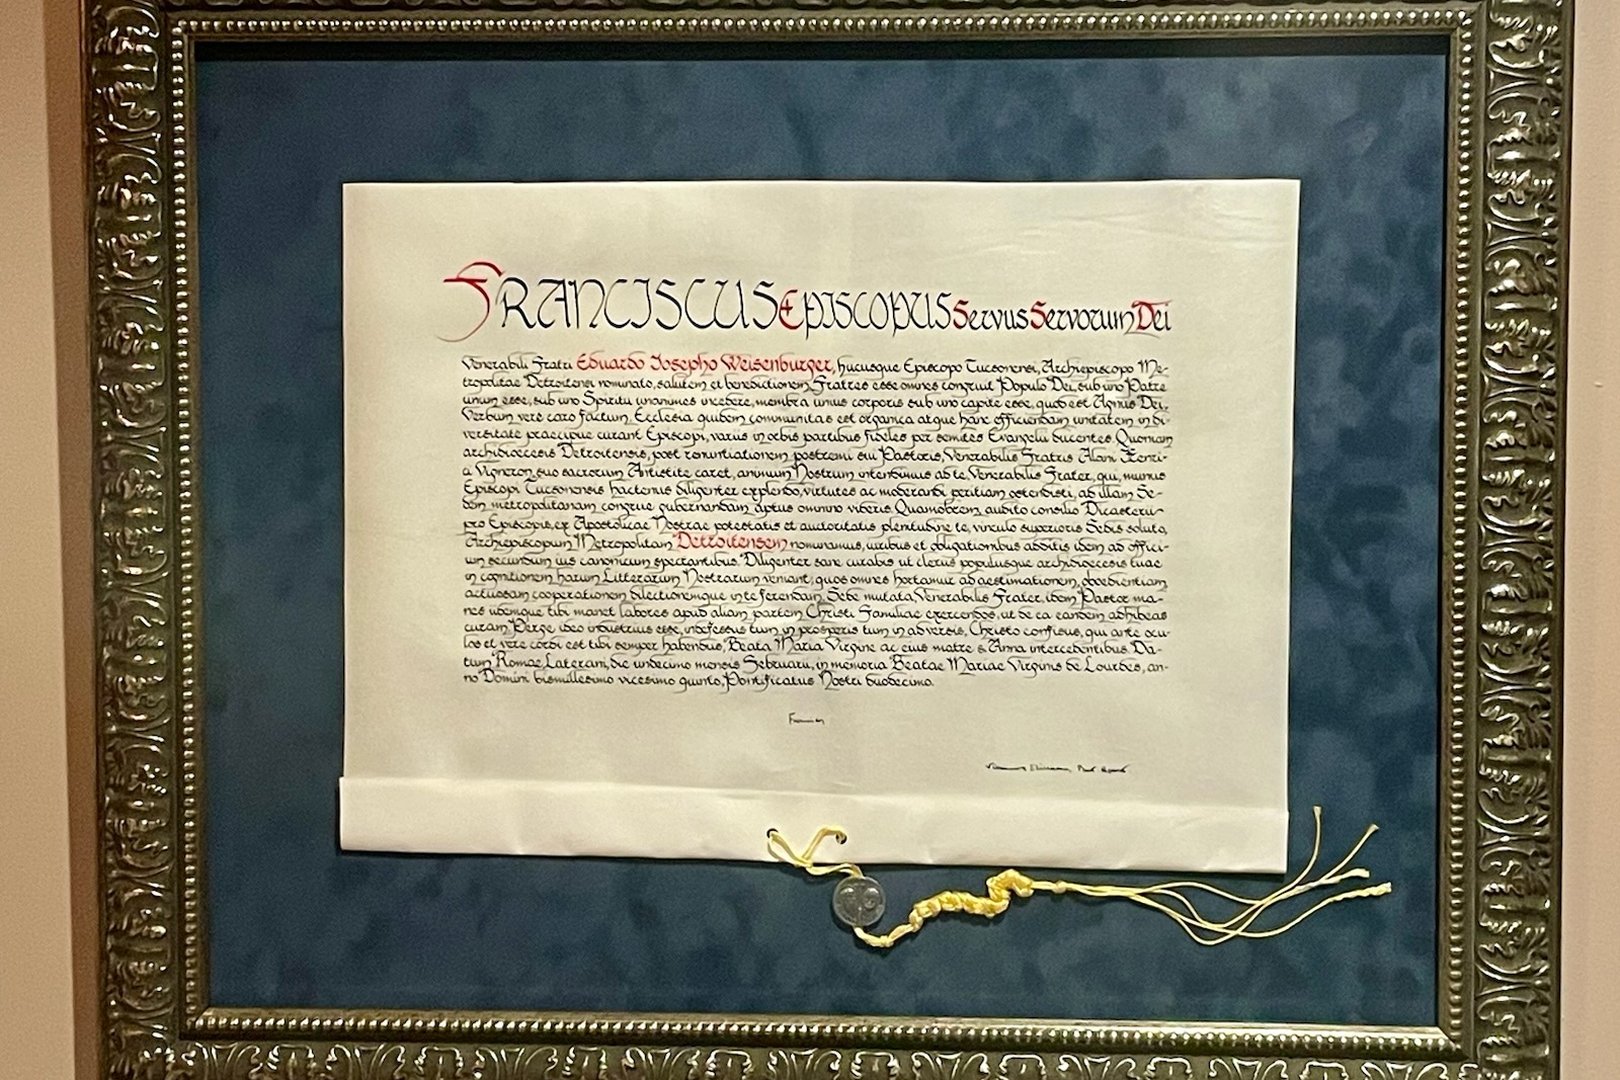 FRANCISCUS EPISCOPUS Servus Servorum Dei
Venerabili Fratri Eduardo Iosepho Weisenburger, hucusque Episcopo Tucsonensi, Archiepiscopo Me-
tropolitae Detroitensi nominato, salutem et benedictionem. Fratres esse omnes congruit Populo Dei, sub uno Patre
unum esse, sub uno Spiritu unanimes incedere, membra unius corporis sub uno capite esse, quod est Agnus Dei,
Verbum vere caro factum. Ecclesia quidem communitas est organica atque hanc efficiendam unitatem in di-
versitate praecipue curant Episcopi, variis in orbis partibus fideles per semites Evangelii ducentes. Quoniam
archidioecesis Detroitensis, post renuntiationem postremi sui Pastoris, Venerabilis Fratris Alani Henri-
ci Vigneron, suo sacrorum Antistite caret, animum Nostrum intendimus ad te, Venerabilis Frater, qui, munus
Episcopi Tucsonensis hactenus diligenter explendo, virtutes ac moderandi peritiam ostendisti, ad illam Se-
dem metropolitanam congrue gubernandam aptus omnino videris. Quamobrem, audito consilio Dicasterii
pro Episcopis, ex Apostolicae Nostrae potestatis et auctoritatis plenitudine te, vinculo superioris Sedis soluto,
Archiepiscopum Metropolitam Detroitensem nominamus, iuribus et obligationibus additis idem ad offici-
um secundum ius canonicum spectantibus. Diligenter sane curabis ut clerus populusque archidioecesis tuae
in cognitionem harum Litterarum Nostrarum veniant; quos omnes hortamur ad aestimationem, oboedientiam
actuosam cooperationem dilectionemque in te ferendam. Sede mutata, Venerabilis Frater, idem Pastor ma-
nes idemque tibi manet labores apud aliam partem Christi Familiae exercendos, ut de ea eandem adhibeas
curam. Perge ideo industrius esse, indefessus tum in prosperis tum in adversis, Christo confisus, qui ante ocu-
los et vere cordi est tibi semper habendus, Beata Maria Virgine ac eius matre s. Anna intercedentibus. Da-
tum Romae, Laterani, die undecimo mensis Februarii, in memoria Beatae Mariae Virginis de Lourdes, an-
no Domini bismillesimo vicesimo quinto, Pontificatus Nostri duodecimo.